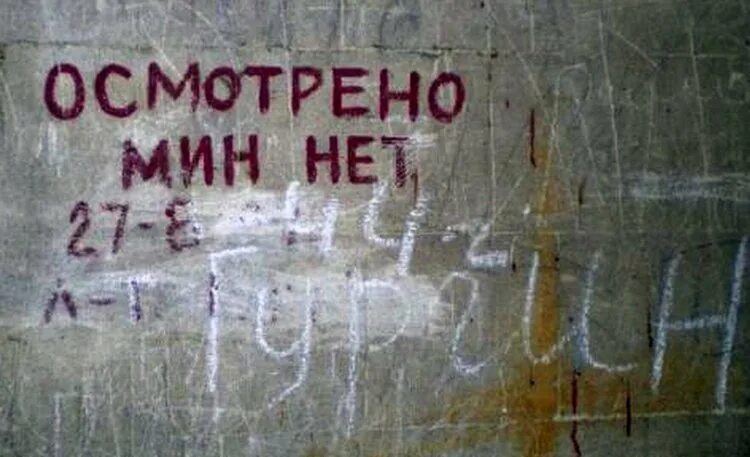 ОСМОТРЕНО
МИН НЕТ
27-8 44
Л-Т Гургин